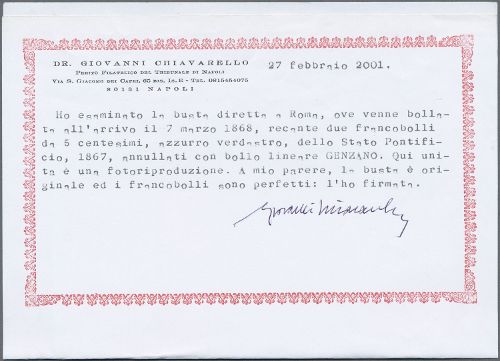 DR. GIOVANNI CHIAVARELLO
PERITO FILATELICO DEL TRIBUNALE DI NAPOLI
VIA S. GIACOMO DEI CAPRI, 65 BIS, IS. E - TEL. 0815454075
80131 NAPOLI
27 febbraio 2001.
Ho esaminato la busta diretta a Roma, ove venne bolla-
ta all'arrivo il 7 marzo 1868, recante due francobolli
da 5 centesimi, azzurro verdastro, dello Stato Pontifi-
cio, 1867, annullati con bollo lineare GENZANO. Qui uni-
ta è una fotoriproduzione. A mio parere, la busta è ori-
ginale ed i francobolli sono perfetti: l'ho firmata.
Giovanni Chiavarello